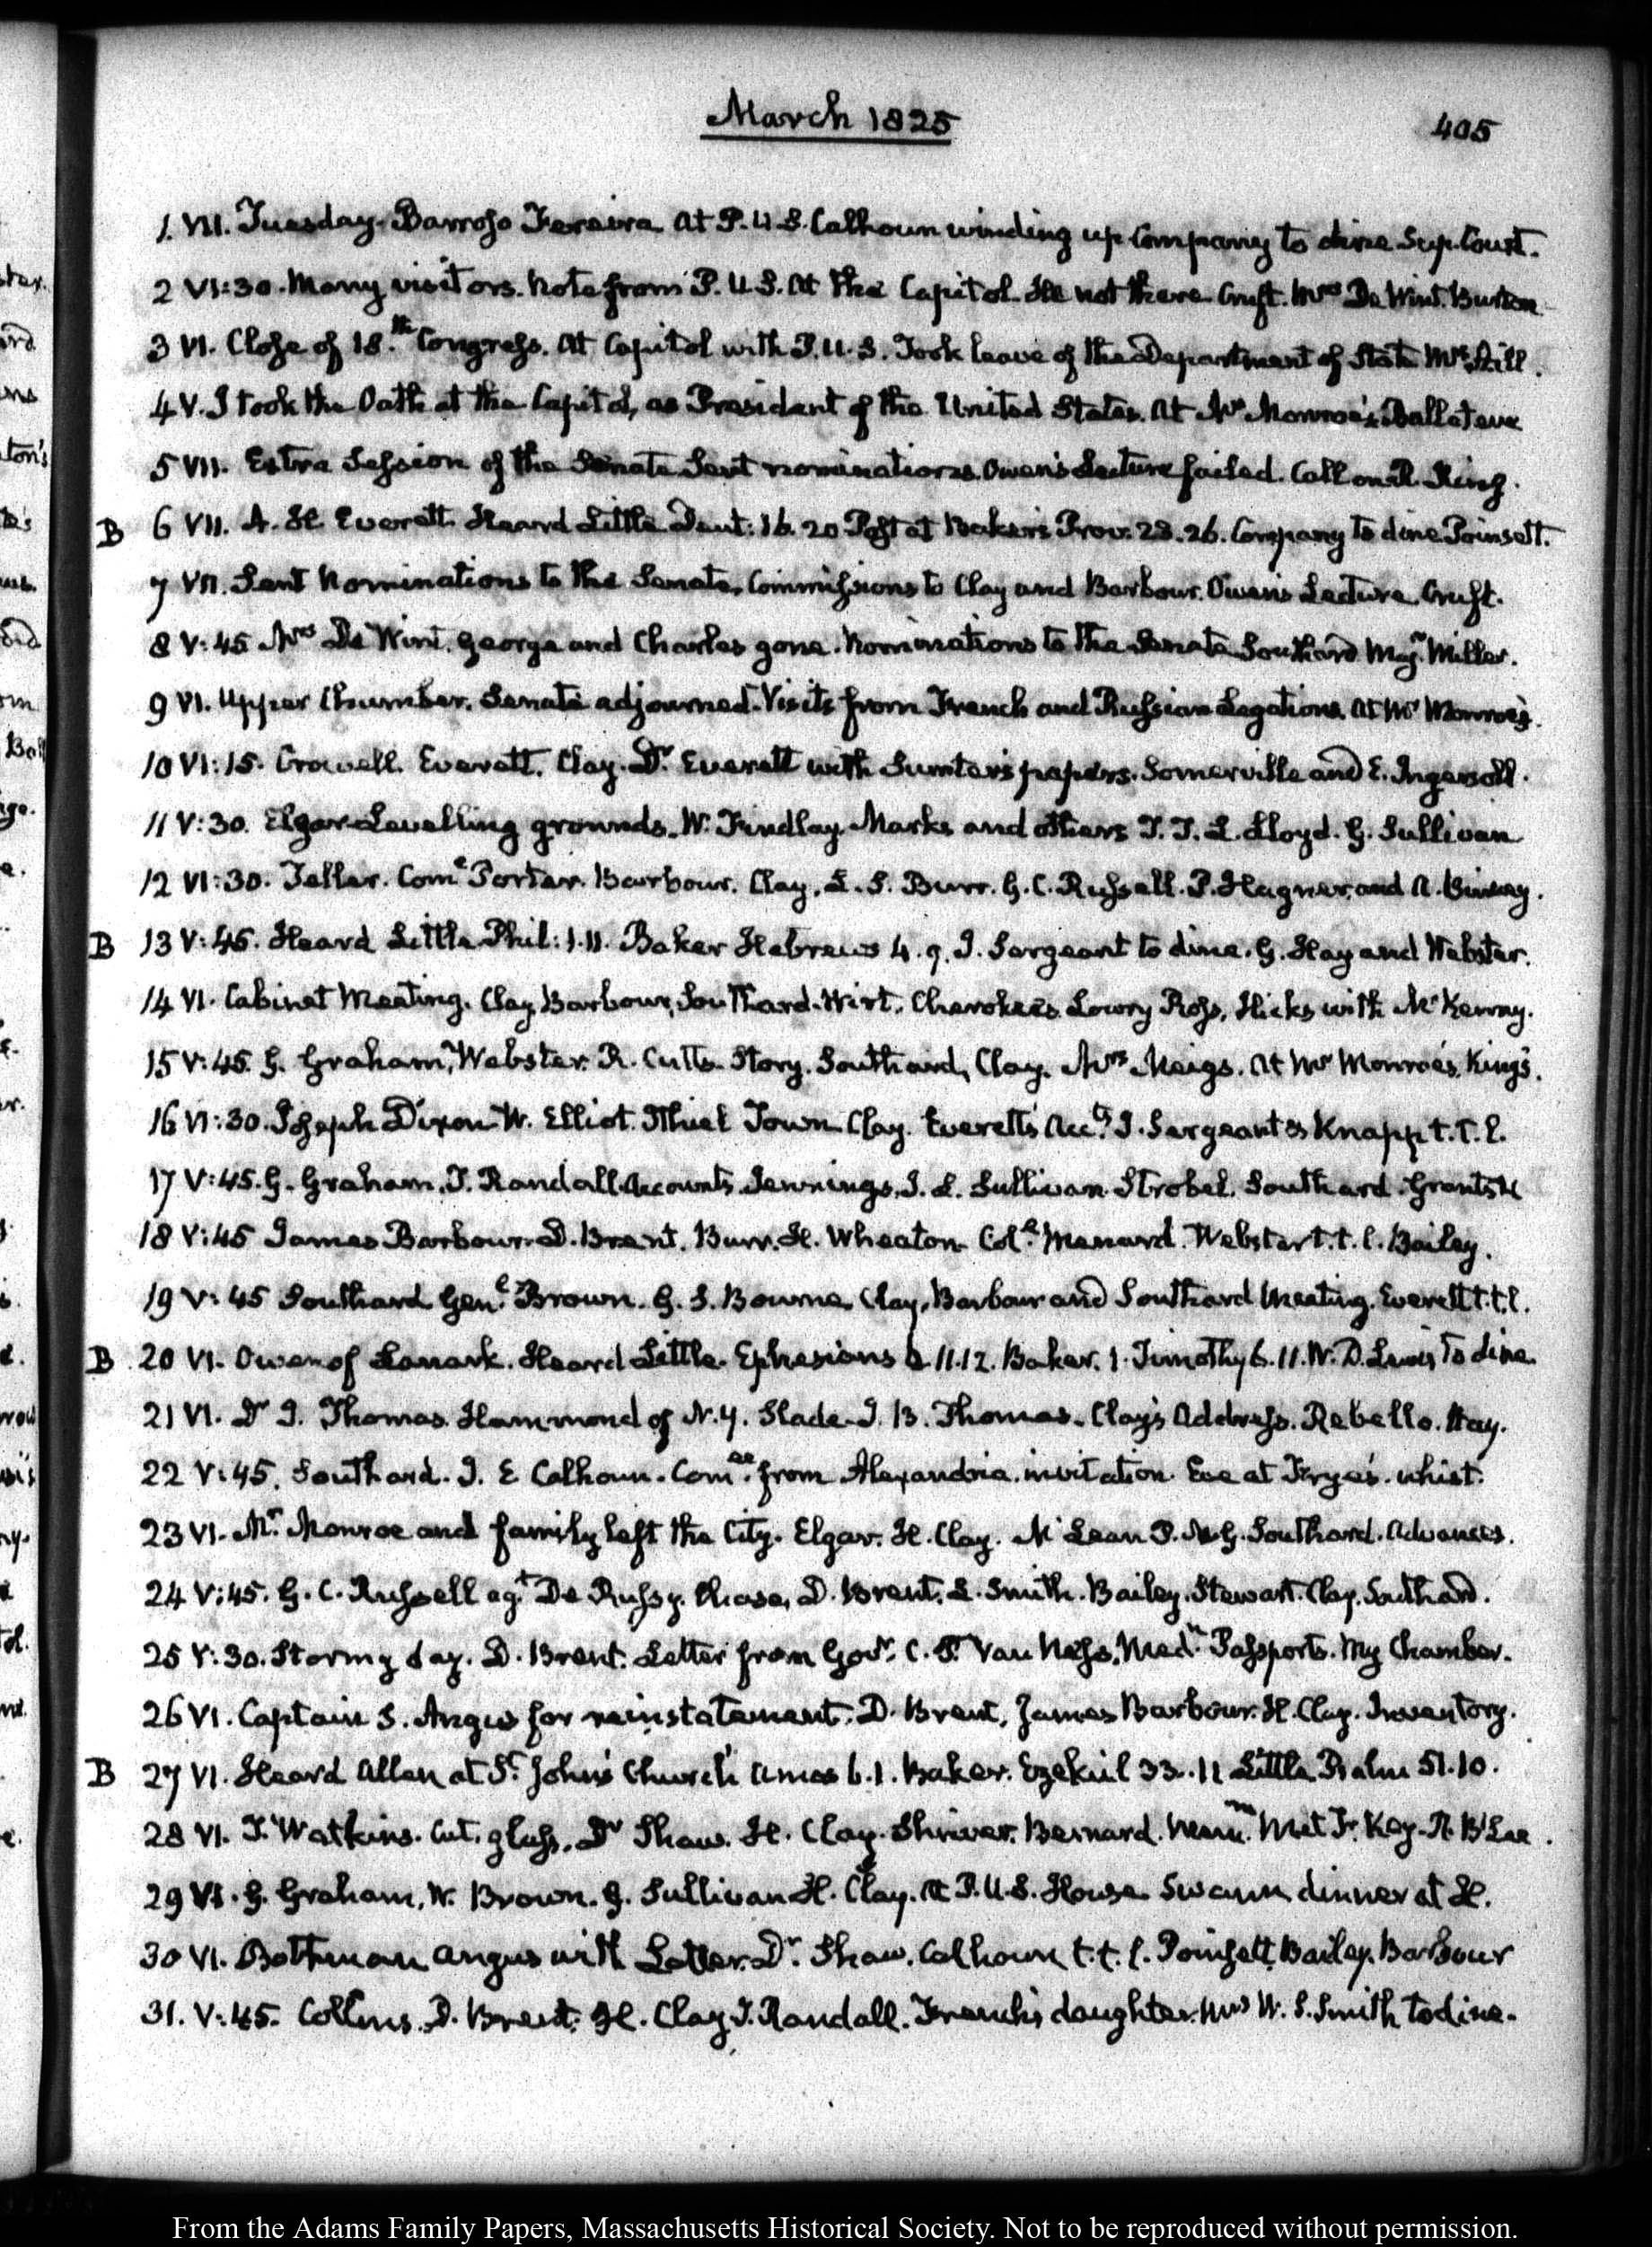 March 1825
405
1. VII. Tuesday. Barroso Fereira at P. U. S. Calhoun winding up Company to dine Sup. Court.
2 VI:30. Many visitors. Note from P. U. S. at the Capitol. He not there Cruft. Mrs De Wint.
3 VI. Close of 18.th Congress. At Capitol with P. U. S. Took leave of the Department of State
4 V. I took the Oath at the Capitol, as President of the United States. At Mr Monroe's. Ball at eve
5 VII. Extra Session of the Senate Sent nominations. Owen's Lecture failed. Call on R. King.
B 6 VII. A. H. Everett. Heard Little Deut: 16. 20 Post at Baker's Prov. 23. 26. Company to dine Poinsett.
7 VII. Sent Nominations to the Senate. Commissions to Clay and Barbour. Owen's Lecture. Cruft.
8 V:45 Mrs De Wint. George and Charles gone. Nominations to the Senate Southard Majr. Miller.
9 VI. Upper Chamber. Senate adjourned. Visits from French and Russian Legations. At Mr Monroe's.
10 VI:15. Crowell. Everett. Clay. Dr. Everett with Sumter's papers. Somerville and E. Ingersoll.
11 V:30. Elgar. Levelling grounds. W. Findlay Marks and others T. T. L. Lloyd. G. Sullivan
12 VI:30. Teller. Come Porter. Barbour. Clay. S. Burr. G. C. Russell. P. Hagner, and A. Binney.
B 13 V:45. Heard Little Phil: 1. 11. Baker Hebrews 4. 9. J. Sergeant to dine. G. Hay and Webster.
14 VI. Cabinet Meeting. Clay, Barbour, Southard. Wirt. Cherokees Lowry Ross, Hicks with McKenney.
15 V:45. G. Graham, Webster. R. Cutts. Story. Southard, Clay. Mrs Meigs. At Mr Monroe's. King's.
16 VI:30. Joseph Dixon W. Elliot. Ithiel Town. Clay. Everett's Acct. J. Sergeant & Knapp t. t. l.
17 V:45. G. Graham. T. Randall. Accounts Jennings. J. L. Sullivan Strobel. Southard.
18 V:45 James Barbour. D. Brent. Burr. H. Wheaton. Coll. Menard. Webster t. t. l. Bailey.
19 V:45 Southard Genl. Brown. G. S. Bourne. Clay, Barbour and Southard Meeting. Everett t. t. l.
B 20 VI. Owen of Lanark. Heard Little. Ephesians 11.12. Baker. 1. Timothy 6. 11. W. D. Lewis to dine.
21 VI. Dr J. Thomas. Hammond of N. Y. Slade. J. B. Thomas. Clay's Address. Rebello. Hay.
22 V:45. Southard. J. E Calhoun. Comee. from Alexandria. invitation. Eve at Frye's. whist.
23 VI. Mr. Monroe and family left the City. Elgar. H. Clay. McLean P. M. G. Southard. Advances.
24 V:45. G. C. Russell agt De Russy. Chase, D. Brent. S. Smith. Bailey. Stewart. Clay. Southard.
25 V:30. Stormy day. D. Brent. Letter from Govr. C. P. Van Ness. Passports. My Chamber.
26 VI. Captain S. Angus for reinstatement. D. Brent, James Barbour. H. Clay. Inventory.
B 27 VI. Heard Allen at St. John's Church Amos 6. 1. Baker. Ezekiel 33. 11 Little. Psalm 51. 10.
28 VI. T. Watkins. Cut, glass. Dr Thaw. H. Clay. Shriver. Bernard. Met Key. R. B. Lee.
29 VI. G. Graham, W. Brown. G. Sullivan H. Clay. At P. U. S. House. Swann dinner at H.
30 VI. Angus with Letter. Dr. Thaw. Calhoun t. t. l. Poinsett. Bailey. Barbour
31. V:45. Collins. D. Brent. H. Clay. T. Randall. French's daughter. Mrs W. S. Smith to dine.
From the Adams Family Papers, Massachusetts Historical Society. Not to be reproduced without permission.